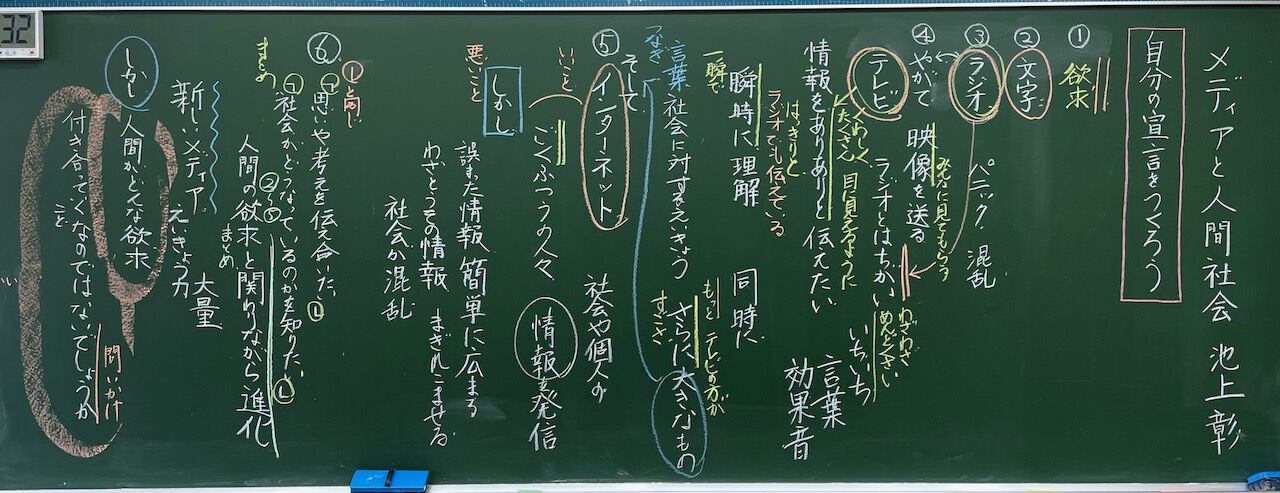 メディアと人間社会 池上彰
自分の宣言をつくろう
①
欲求
②
文字
③
ラジオ
パニック 混乱
④
やがて
映像を送る
みんなに見てもらう
ラジオとはちがい
わざわざ
めんどくさい
いちいち
言葉
効果音
テレビ
くわしく
たくさん
目に見えるように
情報をありありと伝えたい
はっきりと
ラジオでも伝えている
瞬時に理解
一瞬で
同時に
もっと テレビの方が
言葉
なぎ
社会に対するえいきょう
さらに大きなもの
すごさ
⑤
そして
インターネット
社会や個人の
いこと
ごくふつうの人々
情報を発信
しかし
悪いこと
誤った情報 簡単に広まる
わざとうその情報 まぎれこませる
社会が混乱
⑥
①と同じ
思いや考えを伝え合いたい
①
社会がどうなっているのかを知りたい
まとめ
②〜⑤
まとめ
人間の欲求と関りながら進化
新しいメディア
えいきょう力
大量
しかし
人間がどんな欲求
付き合っていくなのではないでしょうか
こと
問いかけ
い
32